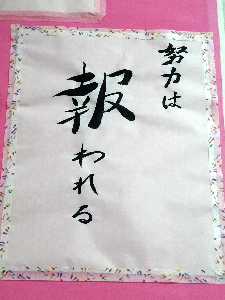 努力は
報われる